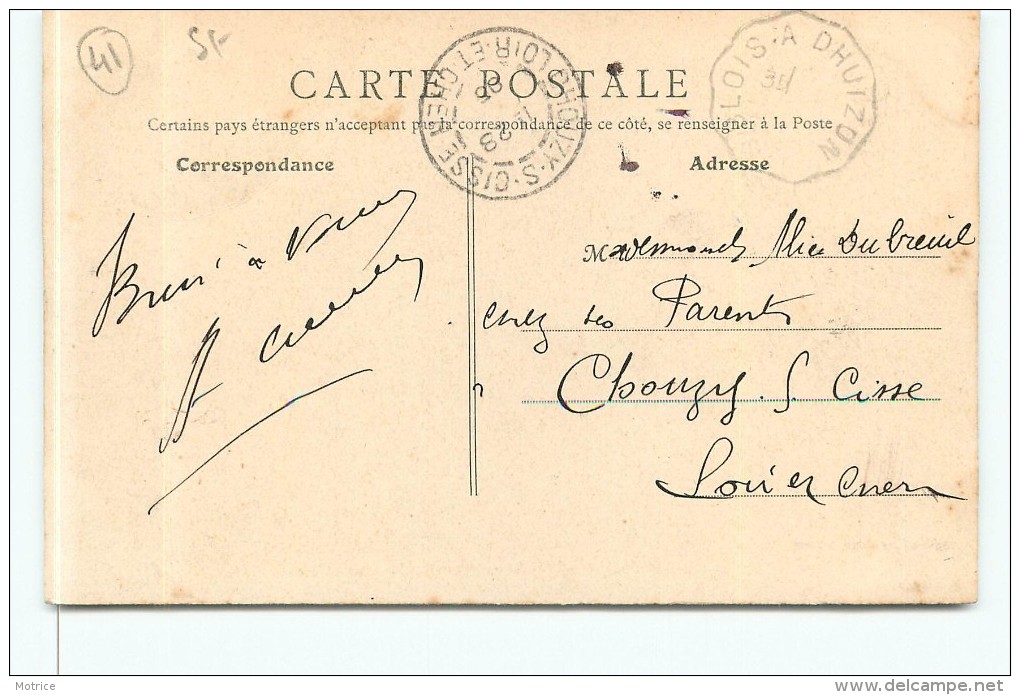 41
CARTE POSTALE
BLOIS A DHUIZON
CHOUZY-S-CISSE LOIR-ET-CHER
Certains pays étrangers n'acceptant pas la correspondance de ce côté, se renseigner à la Poste
Correspondance
Adresse
à
A
Alice Dubreuil
chez ses Parents
Chouzy. S. Cisse
Loir et Cher
Motrice
www.delcampe.net